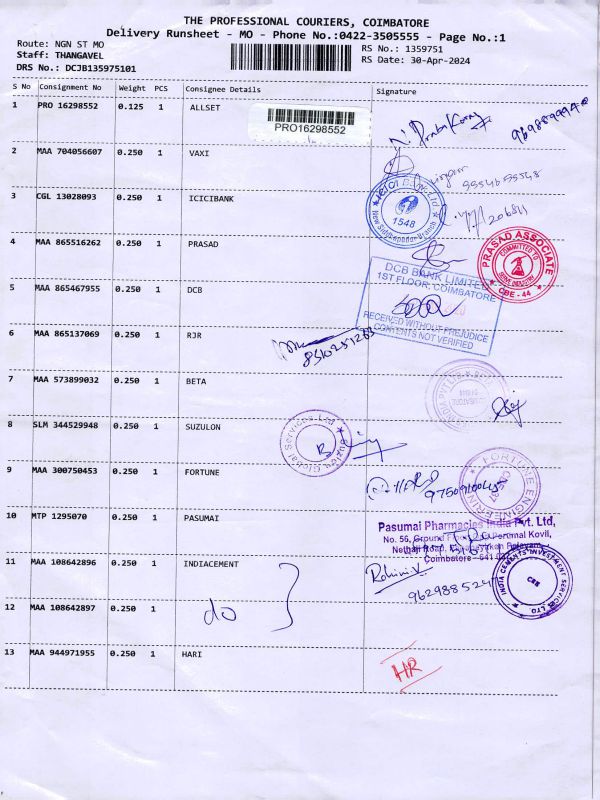 THE PROFESSIONAL COURIERS, COIMBATORE
Delivery Runsheet - MO - Phone No.:0422-3505555 - Page No.:1
Route: NGN ST MO
RS No.: 1359751
Staff: THANGAVEL
RS Date: 30-Apr-2024
DRS No.: DCJB135975101
S No Consignment No Weight PCS Consignee Details Signature
1 PRO 16298552 0.125 1 ALLSET
PRO16298552
2 MAA 704056607 0.250 1 VAXI
3 CGL 13028093 0.250 1 ICICIBANK
ICICI Bank Ltd
1548
4 MAA 865516262 0.250 1 PRASAD
PRASAD ASSOCIATE
COMMITTED TO
SERVE INDUSTRY
CBE - 44
DCB BANK LIMITED
1ST FLOOR, COIMBATORE
5 MAA 865467955 0.250 1 DCB
RECEIVED WITHOUT PREJUDICE
CONTENTS NOT VERIFIED
6 MAA 865137069 0.250 1 RJR
7 MAA 573899032 0.250 1 BETA
8 SLM 344529948 0.250 1 SUZULON
Global Services Ltd
9 MAA 300750453 0.250 1 FORTUNE
FORTUNE ENGINEERING
10 MTP 1295070 0.250 1 PASUMAI
Pasumai Pharmacies India Pvt. Ltd,
No. 56, Ground Floor, Perumal Kovil,
Coimbatore - 641
11 MAA 108642896 0.250 1 INDIACEMENT
Rohini.V
9629885247
INDIA CEMENTS INVESTMENT SERVICES LTD.
CBE
12 MAA 108642897 0.250 1 do
13 MAA 944971955 0.250 1 HARI
HR